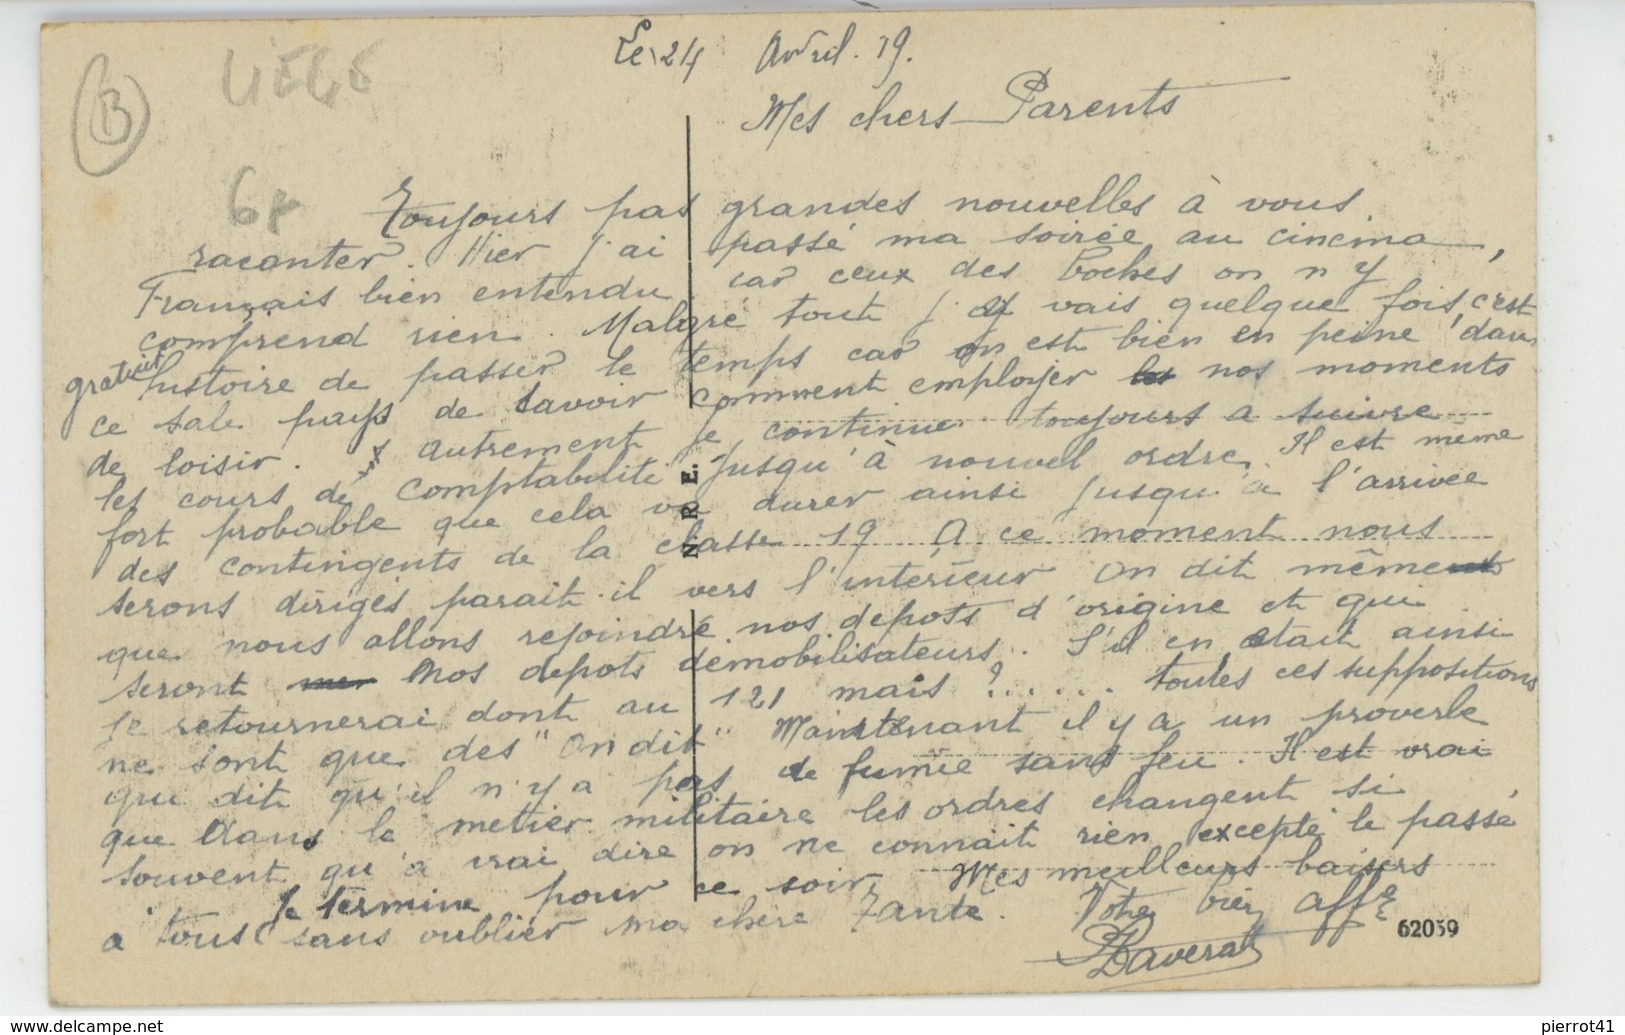 Le 24 Avril. 19.
LIEGE
B
Mes chers Parents
Toujours pas grandes nouvelles à vous
raconter. Hier j'ai passé ma soirée au cinéma,
Français bien entendu car ceux des Boches on n'y
comprend rien. Malgré tout j'y vais quelque fois, c'est
gratuit histoire de passer le temps car on est bien en peine dans
ce sale pays de savoir comment employer nos moments
de loisir. autrement je continue toujours a suivre
les cours de comptabilité jusqu'à nouvel ordre. Il est même
fort probable que cela va durer ainsi jusqu'à l'arrivée
des contingents de la classe 19 A ce moment nous
serons dirigés parait-il vers l'interieur On dit même
que nous allons rejoindre nos depots d'origine et qui
seront nos depots demobilisateurs. S'il en etait ainsi
je retournerai dont au 121 mais ?...... toutes ces suppositions
ne sont que des "On dit" Maintenant il y a un proverbe
qui dit qu'il n'y a pas de fumée sans feu. Il est vrai
que dans le metier militaire les ordres changent si
souvent qu'a vrai dire on ne connait rien excepté le passé
Je termine pour ce soir. Mes meilleurs baisers
a tous sans oublier ma chere Tante. Votre bien affé
Daverat
N R E.
62059
http://www.delcampe.net
pierrot41